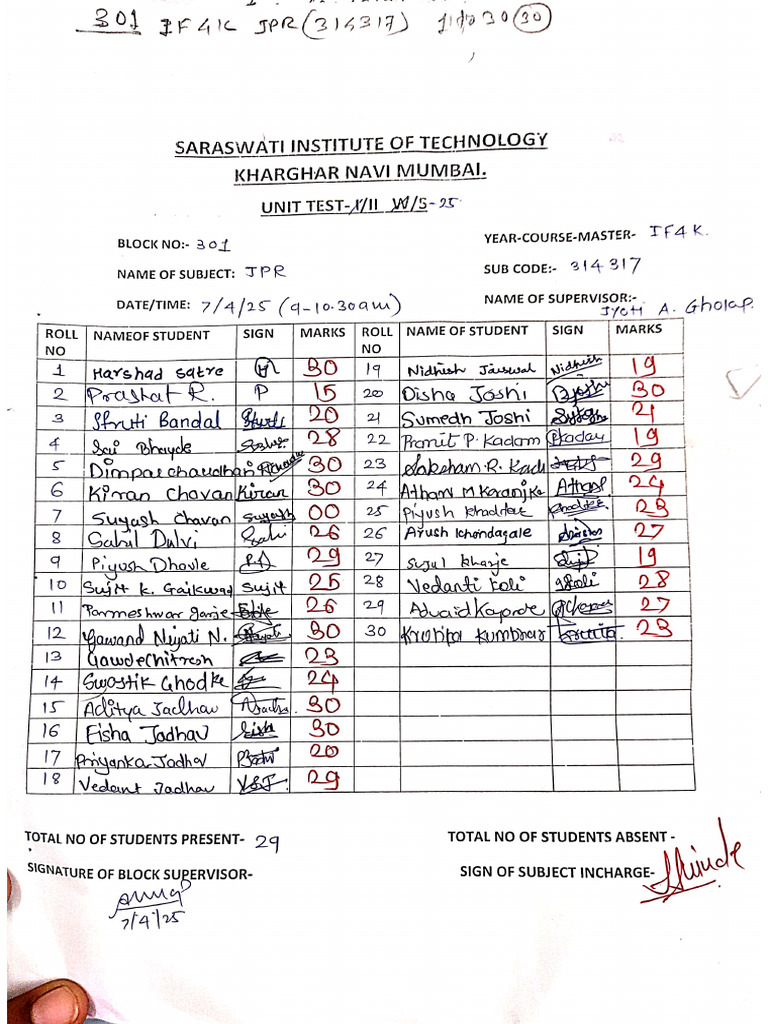 301 IF4K JPR(314317) 1 to 30 (30)
SARASWATI INSTITUTE OF TECHNOLOGY
KHARGHAR NAVI MUMBAI.
UNIT TEST-I/II W/S-25
BLOCK NO:- 301 YEAR-COURSE-MASTER- IF4K.
NAME OF SUBJECT: JPR SUB CODE:- 314317
DATE/TIME: 7/4/25 (9-10.30am) NAME OF SUPERVISOR:- Jyoti A. Gholap.
ROLL NO NAMEOF STUDENT SIGN MARKS ROLL NO NAME OF STUDENT SIGN MARKS
1 Harshad Satre H 30 19 Nidhish Jaiswal Nidhish 19
2 Prashat R. P 15 20 Disha Joshi DJoshi 30
3 Shruti Bandal Shruti 20 21 Sumedh Joshi 21
4 Sai Bhayde 28 22 Pranit P. Kadam PKadam 19
5 Dimpal chaudhari 30 23 Saksham. R. 29
6 Kiran Chavan Kiran 30 24 Atharv M Karanjke Atharv 24
7 Suyash Chavan Suyash 00 25 Piyush Khadtar 23
8 Sahil Dalvi Sahi 26 26 Ayush Khondagale 27
9 Piyush Dhavle 29 27 Sujal Kharje 19
10 Sujit K. Gaikwad Sujit 25 28 Vedanti Koli Vkoli 28
11 Parmeshwar Garje 26 29 Advaid Kaporde 27
12 Gawand Niyati N. Niyati 30 30 Krutika Kumbhar Krutika 23
13 Gawde Chitresh 23
14 Swastik Ghodke 24
15 Aditya Jadhav 30
16 Eisha Jadhav Eisha 30
17 Priyanka Jadhav 20
18 Vedant Jadhav V.S.J. 29
TOTAL NO OF STUDENTS PRESENT- 29 TOTAL NO OF STUDENTS ABSENT -
SIGNATURE OF BLOCK SUPERVISOR- SIGN OF SUBJECT INCHARGE- Shinde
7/4/25